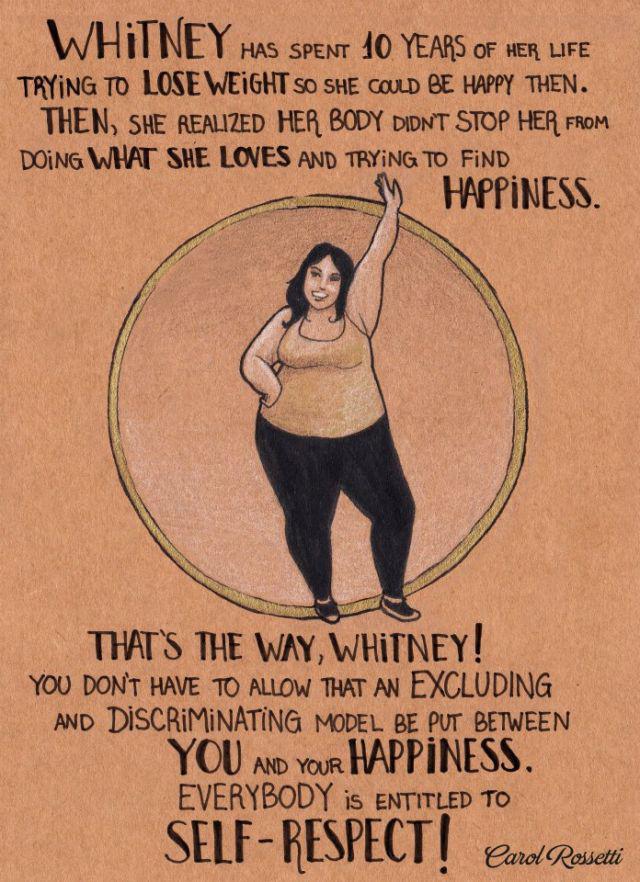 WHiTNEY HAS SPENT 10 YEARS OF HER LIFE
TRYiNG TO LOSE WEiGHT SO SHE COULD BE HAPPY THEN.
THEN, SHE REALIZED HER BODY DIDN'T STOP HER FROM
DOiNG WHAT SHE LOVES AND TRYiNG TO FiND
HAPPiNESS.
THAT'S THE WAY, WHiTNEY!
YOU DON'T HAVE TO ALLOW THAT AN EXCLUDiNG
AND DiSCRiMiNATiNG MODEL BE PUT BETWEEN
YOU AND YOUR HAPPiNESS.
EVERYBODY iS ENTiTLED TO
SELF-RESPECT!
Carol Rossetti